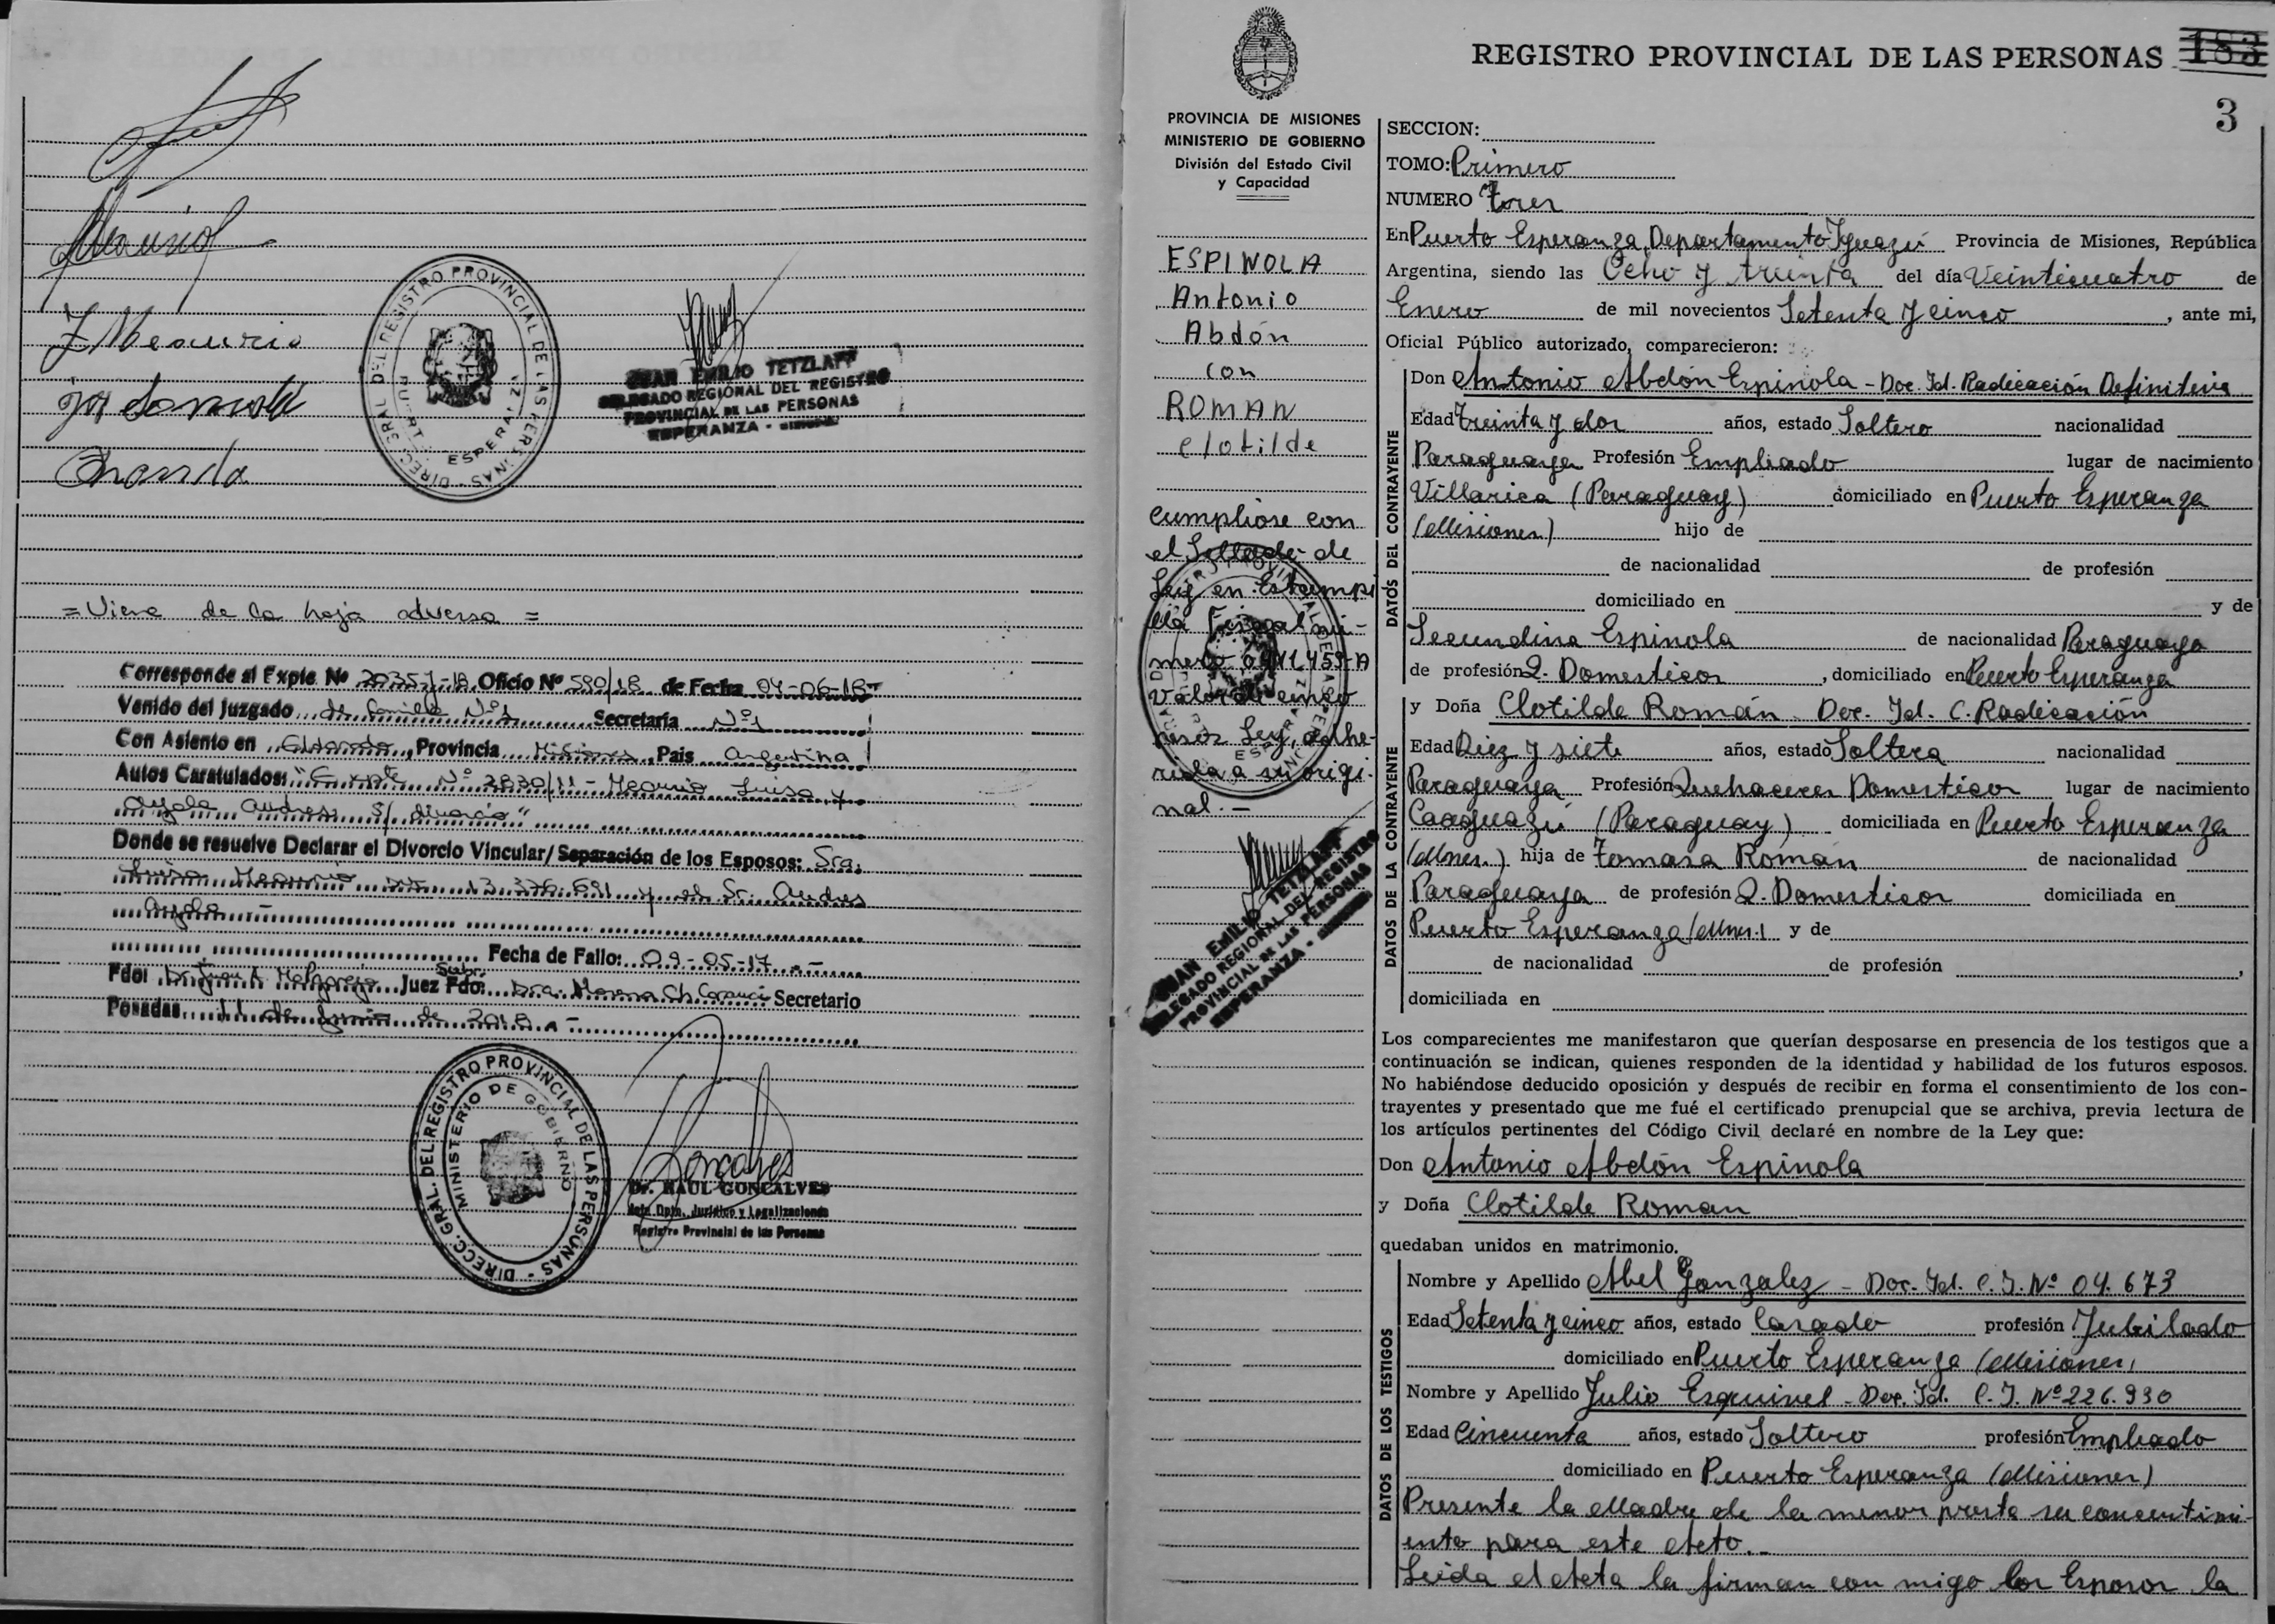 J Mecurio
DIRECC. GRAL. DEL REGISTRO PROVINCIAL DE LAS PERSONAS
ESPERANZA
JUAN EMILIO TETZLAFF
DELEGADO REGIONAL DEL REGISTRO
PROVINCIAL DE LAS PERSONAS
ESPERANZA -
= Viene de la hoja adversa =
Corresponde al Expte. Nº Oficio Nº 580/18 de Fecha 04-06-18
Venido del Juzgado de Familia Nº1 Secretaría Nº1
Con Asiento en Eldorado, Provincia Misiones País Argentina
Autos Caratulados: "Expte Nº 2830/11 - Mecurio Luisa y
Ayala Andres S/ divorcio"
Donde se resuelve Declarar el Divorcio Vincular/Separación de los Esposos: Sra.
Luisa Mecurio 13.376.691 y el Sr. Andres
Ayala -
Fecha de Fallo: 09-05-17 -
Fdo: Dr. Juan A. Juez Subr. Fdo: Dra. Secretario
Posadas 11 de Junio de 2018 -
DIRECC. GRAL. DEL REGISTRO PROVINCIAL DE LAS PERSONAS
MINISTERIO DE GOBIERNO
Dr. RAUL GONCALVES
Dpto. Jurídico y Legalizaciones
Registro Provincial de las Personas
REGISTRO PROVINCIAL DE LAS PERSONAS 183
3
PROVINCIA DE MISIONES
MINISTERIO DE GOBIERNO
División del Estado Civil
y Capacidad
ESPINOLA
Antonio
Abdón
con
ROMAN
Clotilde
cumplióse con
el Sellado de
Ley en Estampi
lla Fiscal nú-
mero
valor de cinco
pesos Ley, adhe-
rida a su origi-
nal.-
JUAN EMILIO TETZLAFF
DELEGADO REGIONAL DEL REGISTRO
PROVINCIAL DE LAS PERSONAS
ESPERANZA -
SECCION:
TOMO: Primero
NUMERO Tres
En Puerto Esperanza, Departamento Iguazú Provincia de Misiones, República
Argentina, siendo las Ocho y treinta del día Veinticuatro de
Enero de mil novecientos Setenta y cinco, ante mi,
Oficial Público autorizado, comparecieron:
DATOS DEL CONTRAYENTE
Don Antonio Abdón Espinola - Doc. Id. Radicación Definitiva
Edad treinta y dos años, estado Soltero nacionalidad
Paraguaya Profesión Empleado lugar de nacimiento
Villarica (Paraguay) domiciliado en Puerto Esperanza
(Misiones) hijo de
de nacionalidad de profesión
domiciliado en y de
Secundina Espinola de nacionalidad Paraguaya
de profesión Q. Domesticos, domiciliado en Puerto Esperanza
DATOS DE LA CONTRAYENTE
y Doña Clotilde Román Doc. Id. C. Radicación
Edad Diez y siete años, estado Soltera nacionalidad
Paraguaya Profesión Quehaceres Domesticos lugar de nacimiento
Caaguazú (Paraguay) domiciliada en Puerto Esperanza
(Mnes.) hija de Tomasa Román de nacionalidad
Paraguaya de profesión Q. Domesticos domiciliada en
Puerto Esperanza (Mnes.) y de
de nacionalidad de profesión ,
domiciliada en
Los comparecientes me manifestaron que querían desposarse en presencia de los testigos que a
continuación se indican, quienes responden de la identidad y habilidad de los futuros esposos.
No habiéndose deducido oposición y después de recibir en forma el consentimiento de los con-
trayentes y presentado que me fué el certificado prenupcial que se archiva, previa lectura de
los artículos pertinentes del Código Civil declaré en nombre de la Ley que:
Don Antonio Abdón Espinola
y Doña Clotilde Roman
quedaban unidos en matrimonio.
DATOS DE LOS TESTIGOS
Nombre y Apellido Abel Gonzalez - Doc. Id. C.I. Nº 04.673
Edad Setenta y cinco años, estado Casado profesión Jubilado
domiciliado en Puerto Esperanza (Misiones)
Nombre y Apellido Julio Esquivel - Doc. Id. C.I. Nº 226.930
Edad Cincuenta años, estado Soltero profesión Empleado
domiciliado en Puerto Esperanza (Misiones)
Presente la Madre de la menor presta su concentimi-
ento para este Acto.-
Leida el Acta la firman con migo los Esposos la